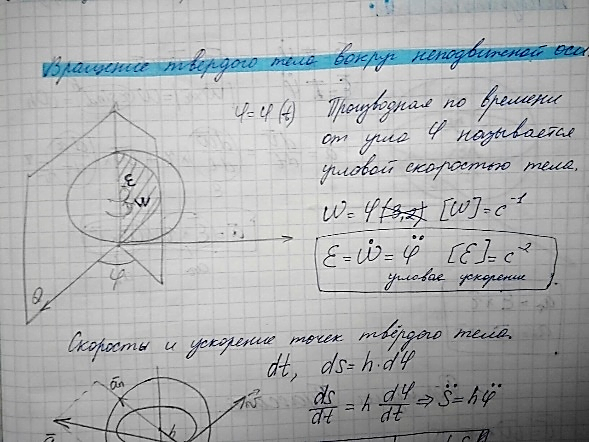 Вращение твёрдого тела вокруг неподвижной оси.
φ = φ(t) Производная по времени
от угла φ называется
угловой скоростью тела.
ε
W
W = φ(3,2) [W] = c⁻¹
ε = Ẅ = φ̈ [ε] = c⁻²
угловое ускорение
Q
φ
Скоросты и ускорение точек твёрдого тела.
dt, ds = h·dφ
ds/dt = h dφ/dt ⇒ S̈ = hφ̈
āₙ
h